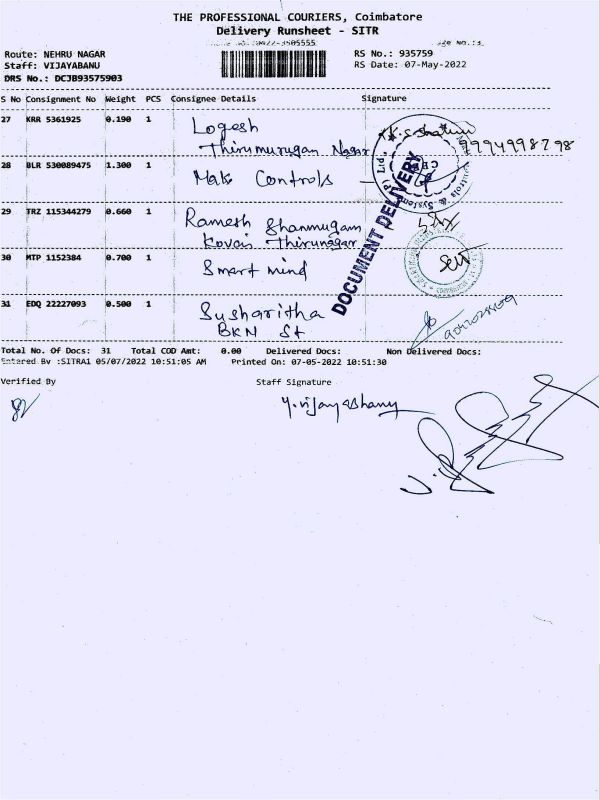 THE PROFESSIONAL COURIERS, Coimbatore
Delivery Runsheet - SITR
Route: NEHRU NAGAR
Staff: VIJAYABANU
DRS No.: DCJB93575903
RS No.: 935759
RS Date: 07-May-2022
S No Consignment No Weight PCS Consignee Details Signature
27 KRR 5361925 0.190 1 Logesh
Thirumurugan Nagar
9994998798
28 BLR 530089475 1.300 1 Mak Controls
29 TRZ 115344279 0.660 1 Ramesh Shanmugam
Kovai Thirunagar
30 MTP 1152384 0.700 1 Smart mind
31 EDQ 22227093 0.500 1 Susharitha
BKN St
DOCUMENT DELIVERY
Total No. Of Docs: 31 Total COD Amt: 0.00 Delivered Docs: Non Delivered Docs:
Entered By :SITRA1 05/07/2022 10:51:05 AM Printed On: 07-05-2022 10:51:30
Verified By Staff Signature